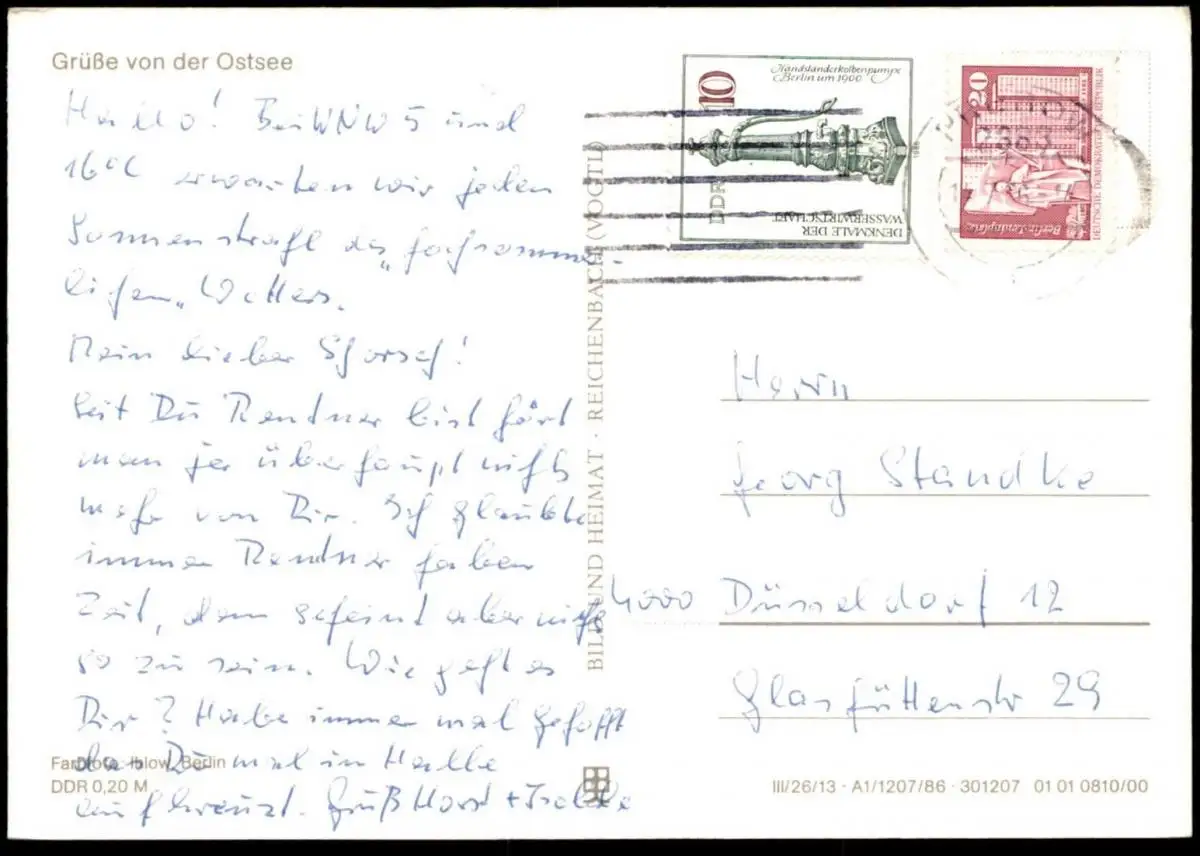 Grüße von der Ostsee
Hallo! Bei WNW 5 und
16°C erwarten wir jeden
Sonnenstrahl des „hochsommer-
lichen„ Wetters.
Mein lieber Schorsch!
Seit Du Rentner bist hört
man ja überhaupt nichts
mehr von Dir. Ich glaubte
immer Rentner haben
Zeit, dem scheint aber nicht
so zu sein. Wie geht es
Dir? Habe immer mal gehofft
das Du mal in Halle
aufkreuzt. Gruß Horst +
Farbfoto: Ihlow, Berlin
DDR 0,20 M
BILD UND HEIMAT · REICHENBACH (VOGTL)
10
Handständerkolbenpumpe
Berlin um 1900
DDR
DENKMALE DER
WASSERWIRTSCHAFT
20
Berlin-Leninplatz
DEUTSCHE DEMOKRATISCHE REPUBLIK
Herrn
Georg Standke
4000 Düsseldorf 12
Glashüttenstr 29
III/26/13 · A1/1207/86 · 301207 01 01 0810/00